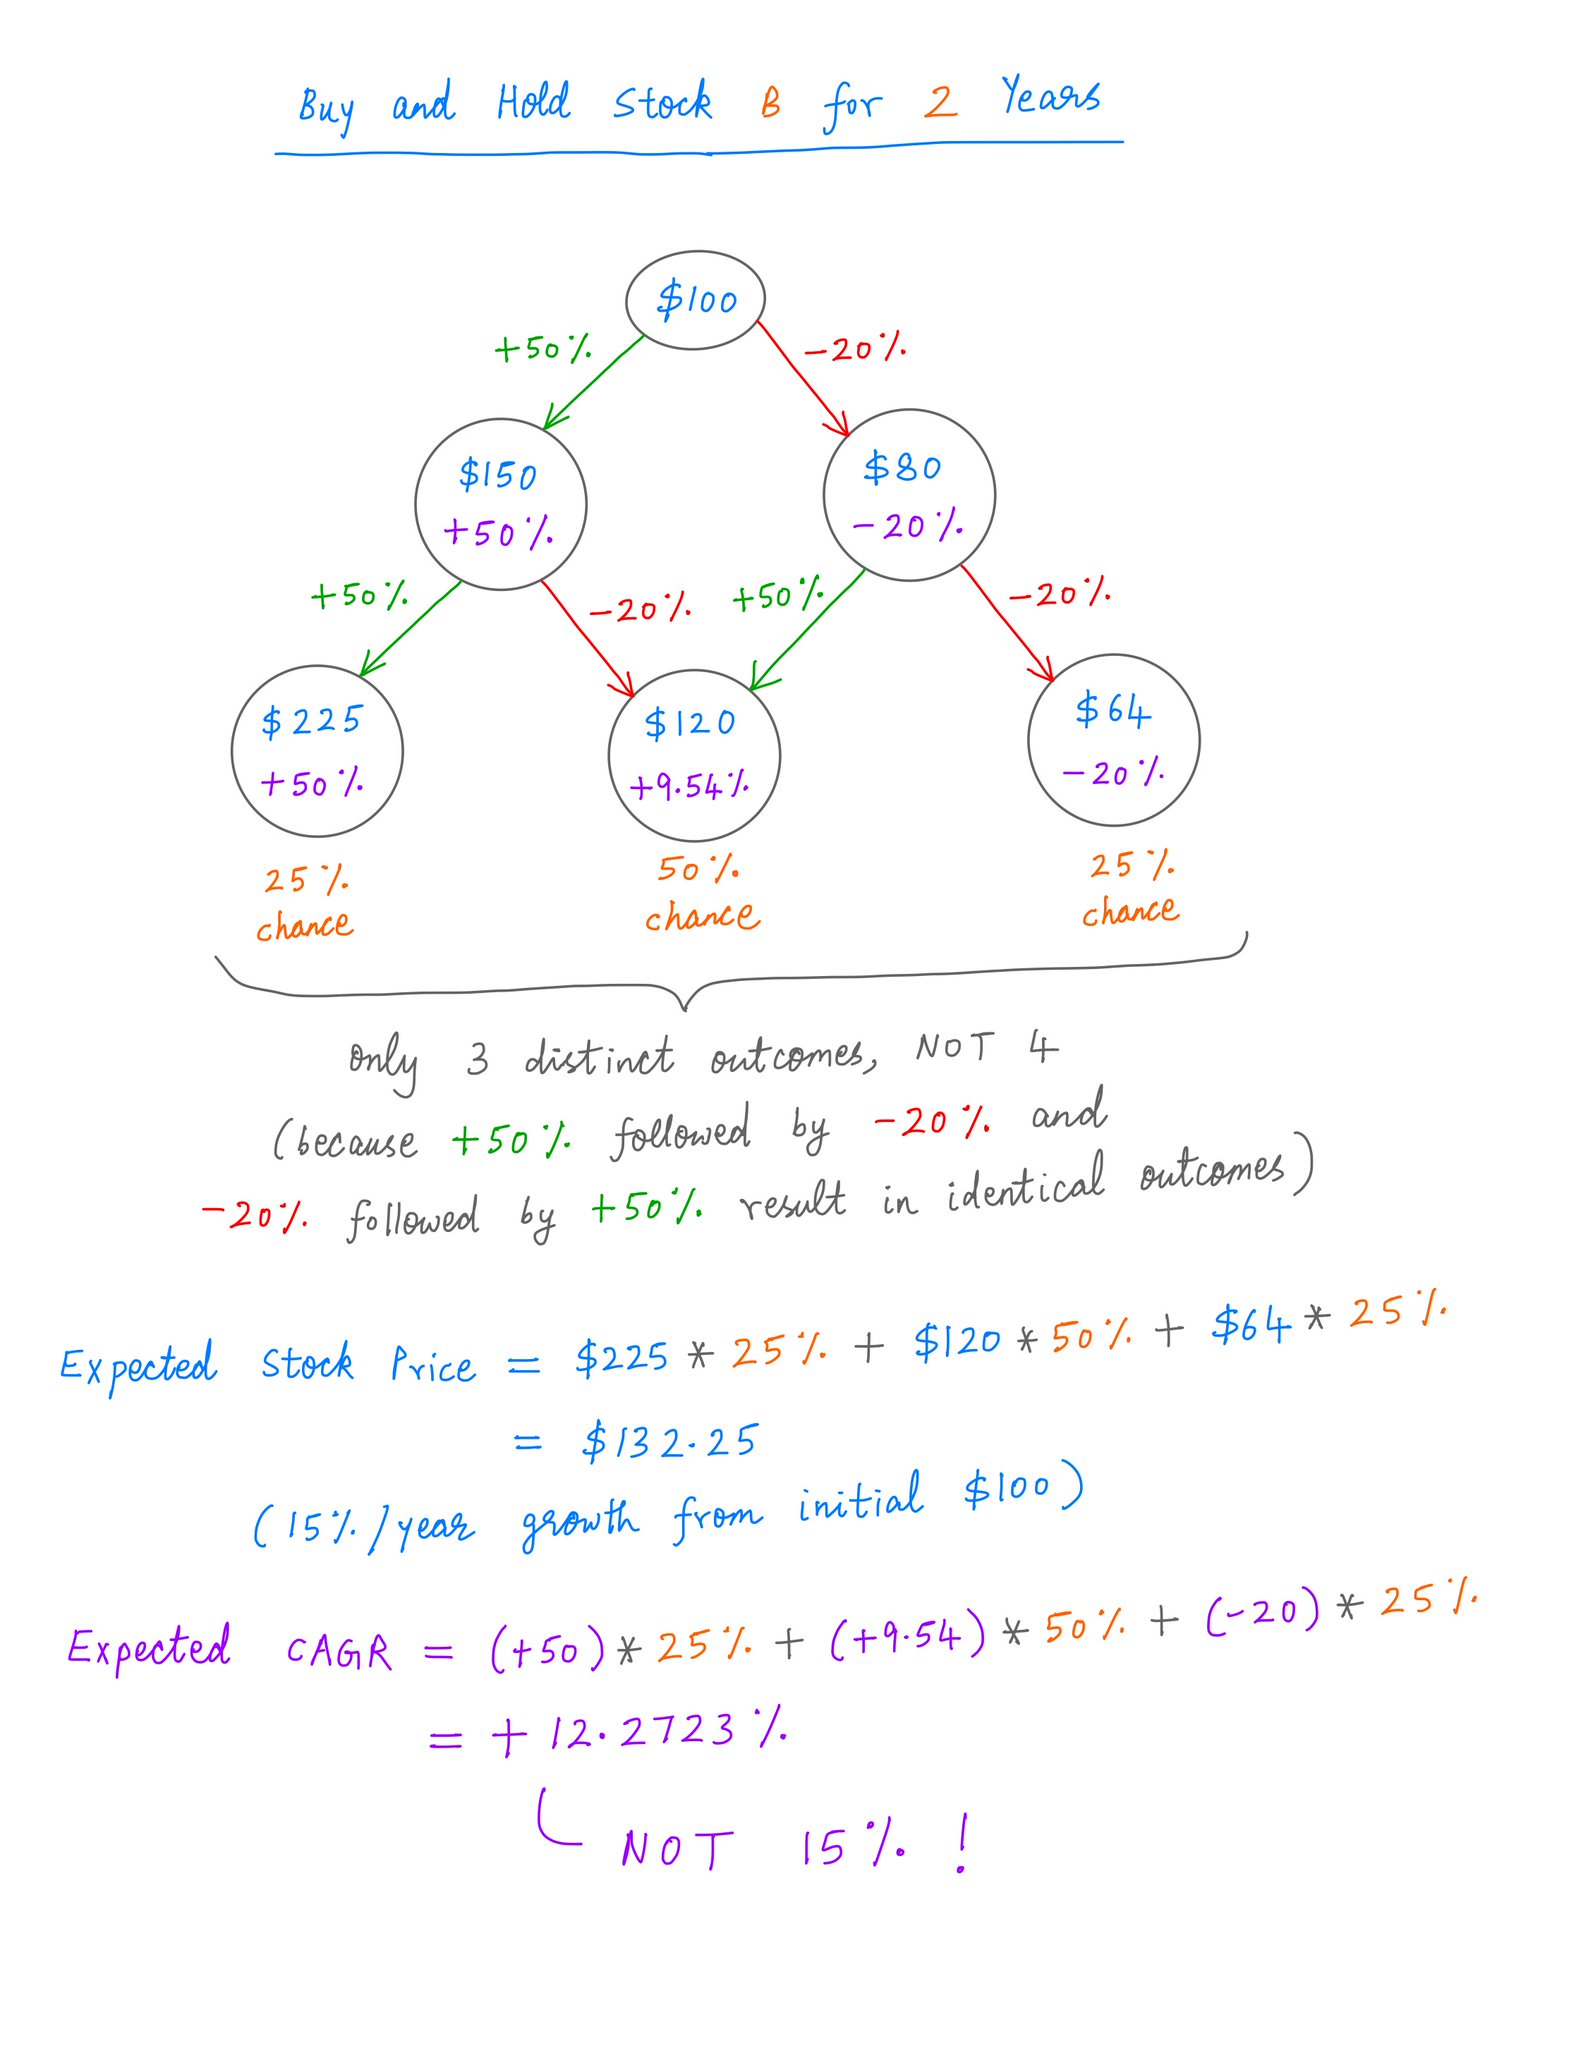 Buy and Hold Stock B for 2 Years
$100
+50%
-20%
$150
+50%
$80
-20%
+50%
-20%
+50%
-20%
$225
+50%
$120
+9.54%
$64
-20%
25%
chance
50%
chance
25%
chance
only 3 distinct outcomes, NOT 4
(because +50% followed by -20% and
-20% followed by +50% result in identical outcomes)
Expected Stock Price = $225 * 25% + $120 * 50% + $64 * 25%
= $132.25
(15%/year growth from initial $100)
Expected CAGR = (+50) * 25% + (+9.54) * 50% + (-20) * 25%
= +12.2723%
NOT 15%!